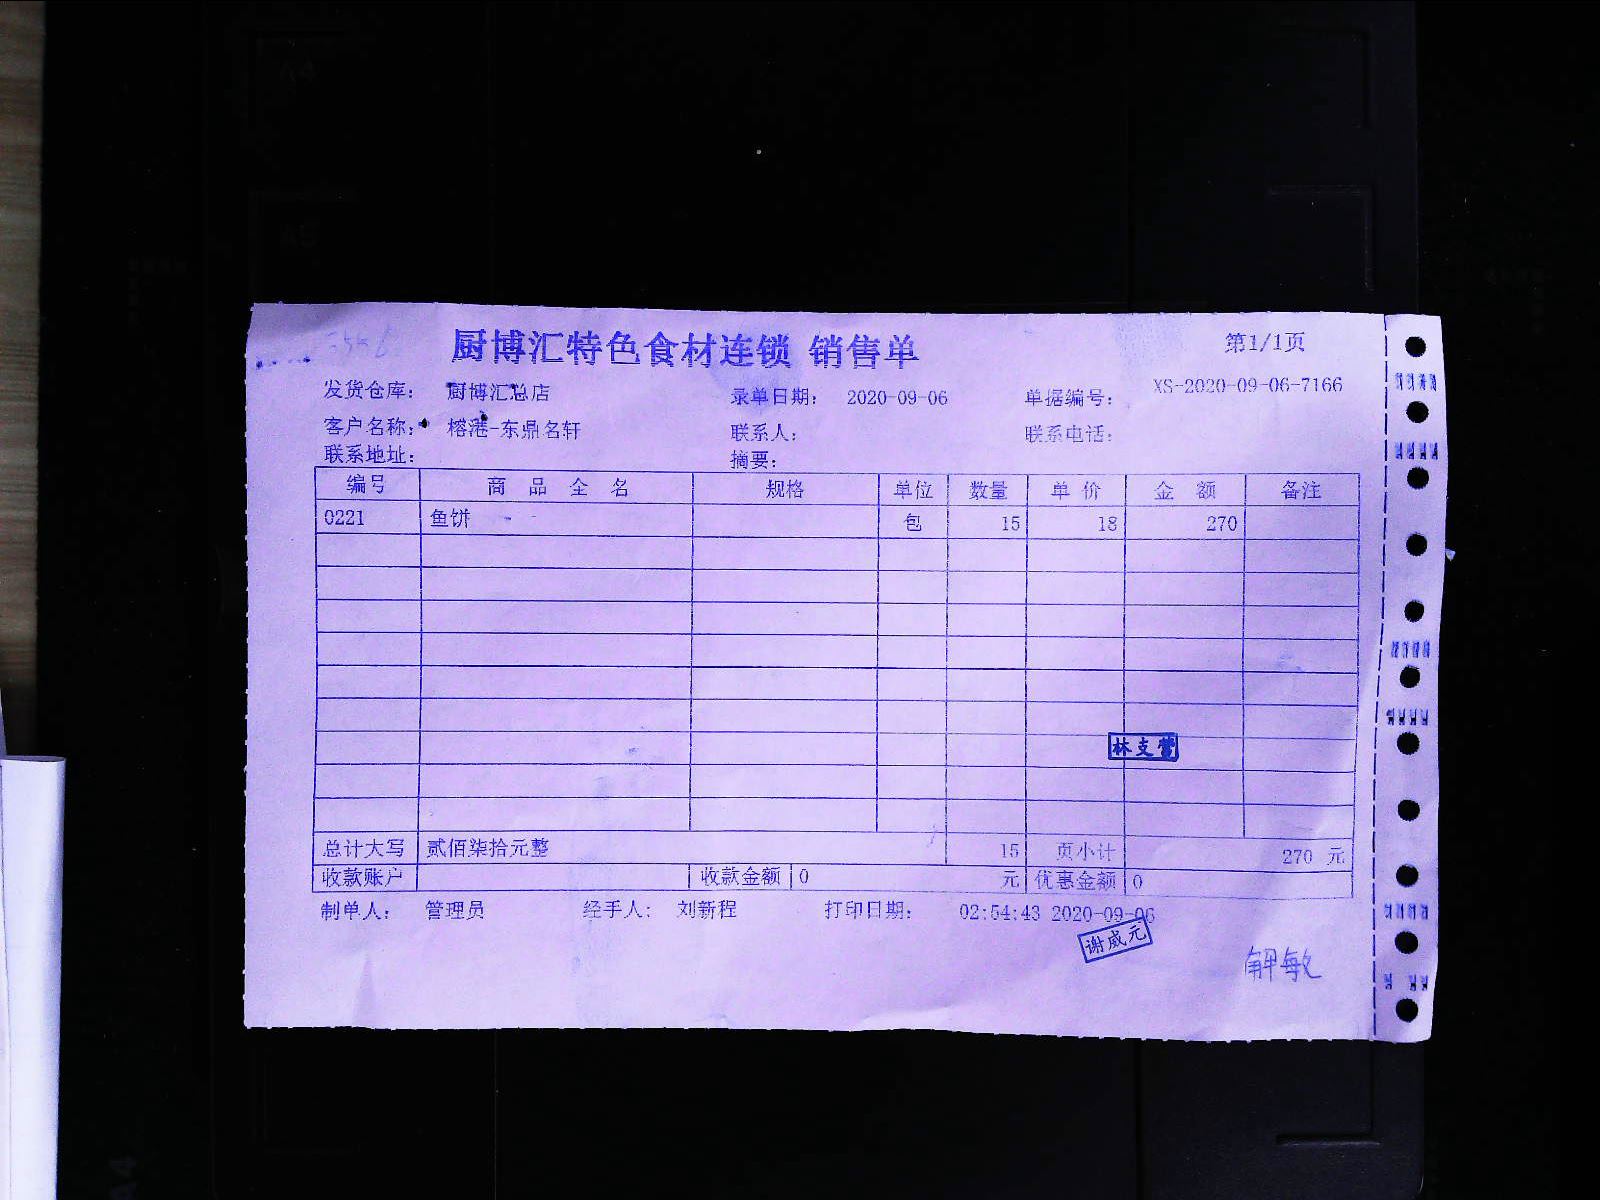 厨博汇特色食材连锁 销售单
第1/1页
发货仓库： 厨博汇总店 录单日期： 2020-09-06 单据编号： XS-2020-09-06-7166
客户名称： 榕港-东鼎名轩 联系人： 联系电话：
联系地址： 摘要：
编号 商品全名 规格 单位 数量 单价 金额 备注
0221 鱼饼 包 15 18 270
林支营
总计大写 贰佰柒拾元整 15 页小计 270 元
收款账户 收款金额 0 元 优惠金额 0
制单人： 管理员 经手人： 刘新程 打印日期： 02:54:43 2020-09-06
谢威元
解敏